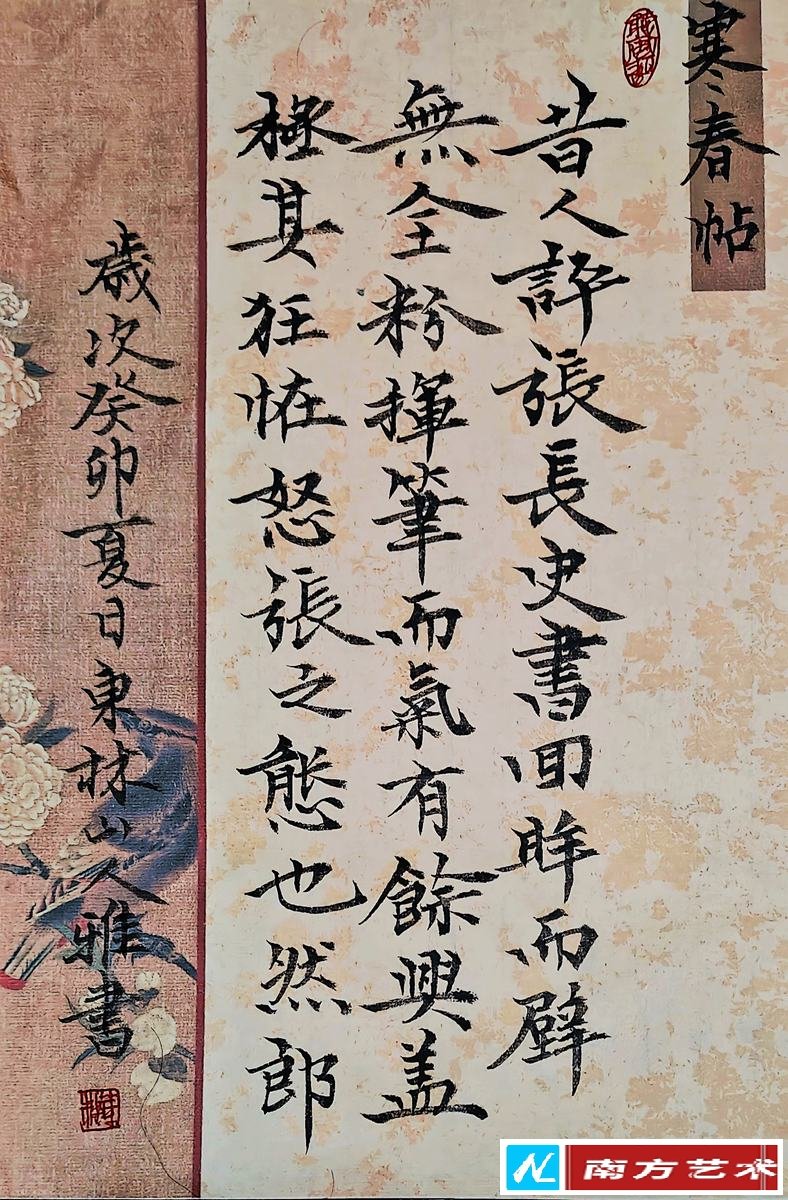 寒春帖
昔人評張長史書回眸而壁
無全粉揮筆而氣有餘興盖
極其狂怪怒張之態也然郎
歲次癸卯夏日東林山人雅書
南方艺术